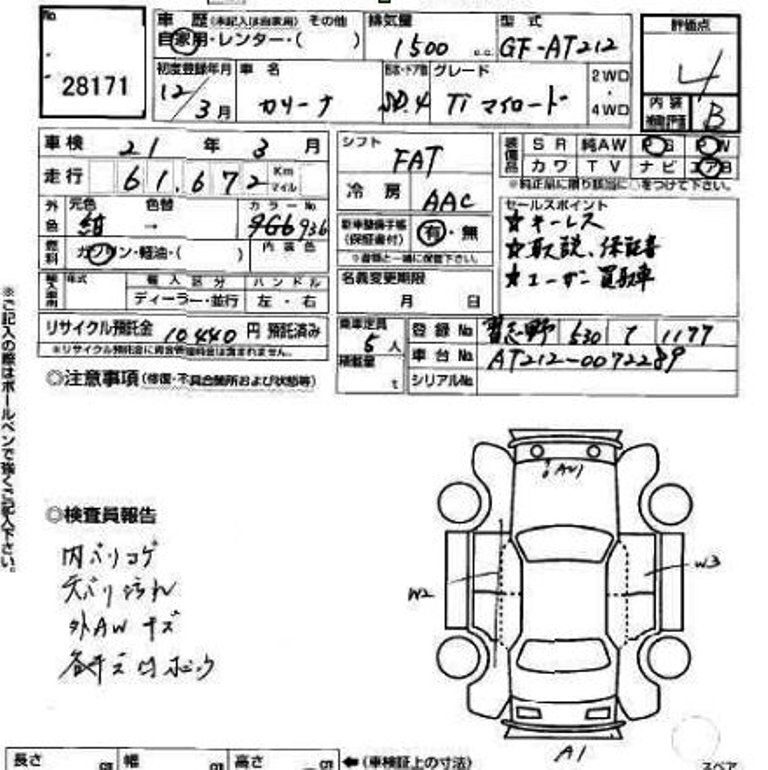 No.
28171
車歴 (未記入は自家用) その他
自家用・レンター・( )
排気量
1500 c.c.
型式
GF-AT212
評価点
4
初度登録年月
12/3月
車名
カリーナ
SD.4
グレード
Ti マイロード
2WD
・
4WD
内装
B
車検 21年 3月
走行 61,672 Km マイル
シフト
FAT
冷房
AAC
装備品
SR 純AW PS PW
カワ TV ナビ エアB
※純正品に限り該当に○をつけて下さい。
外色
元色 色替 カラーNo
紺 → 9G6936
内装色
燃料
ガソリン・軽油・( )
新車整備手帳
(保証書付)
有・無
※書類と一緒に保管下さい。
セールスポイント
★キーレス
★取説、保証書
★ユーザー買取車
年式 輸入区分 ハンドル
ディーラー・並行 左・右
名義変更期限
月 日
リサイクル預託金 10,440 円 預託済み
乗車定員
5人
積載量
t
登録No. 習志野 530 1177
車台No. AT212-0072289
シリアルNo.
◎注意事項 (修復・不具合箇所および状態等)
※ご記入の際はボールペンで強くご記入下さい。
◎検査員報告
内バリコゲ
天バリ汚れ
外AWキズ
各キズ凹ホック
W2
W3
A1
長さ cm 幅 cm 高さ cm ←(車検証上の寸法)
スペア